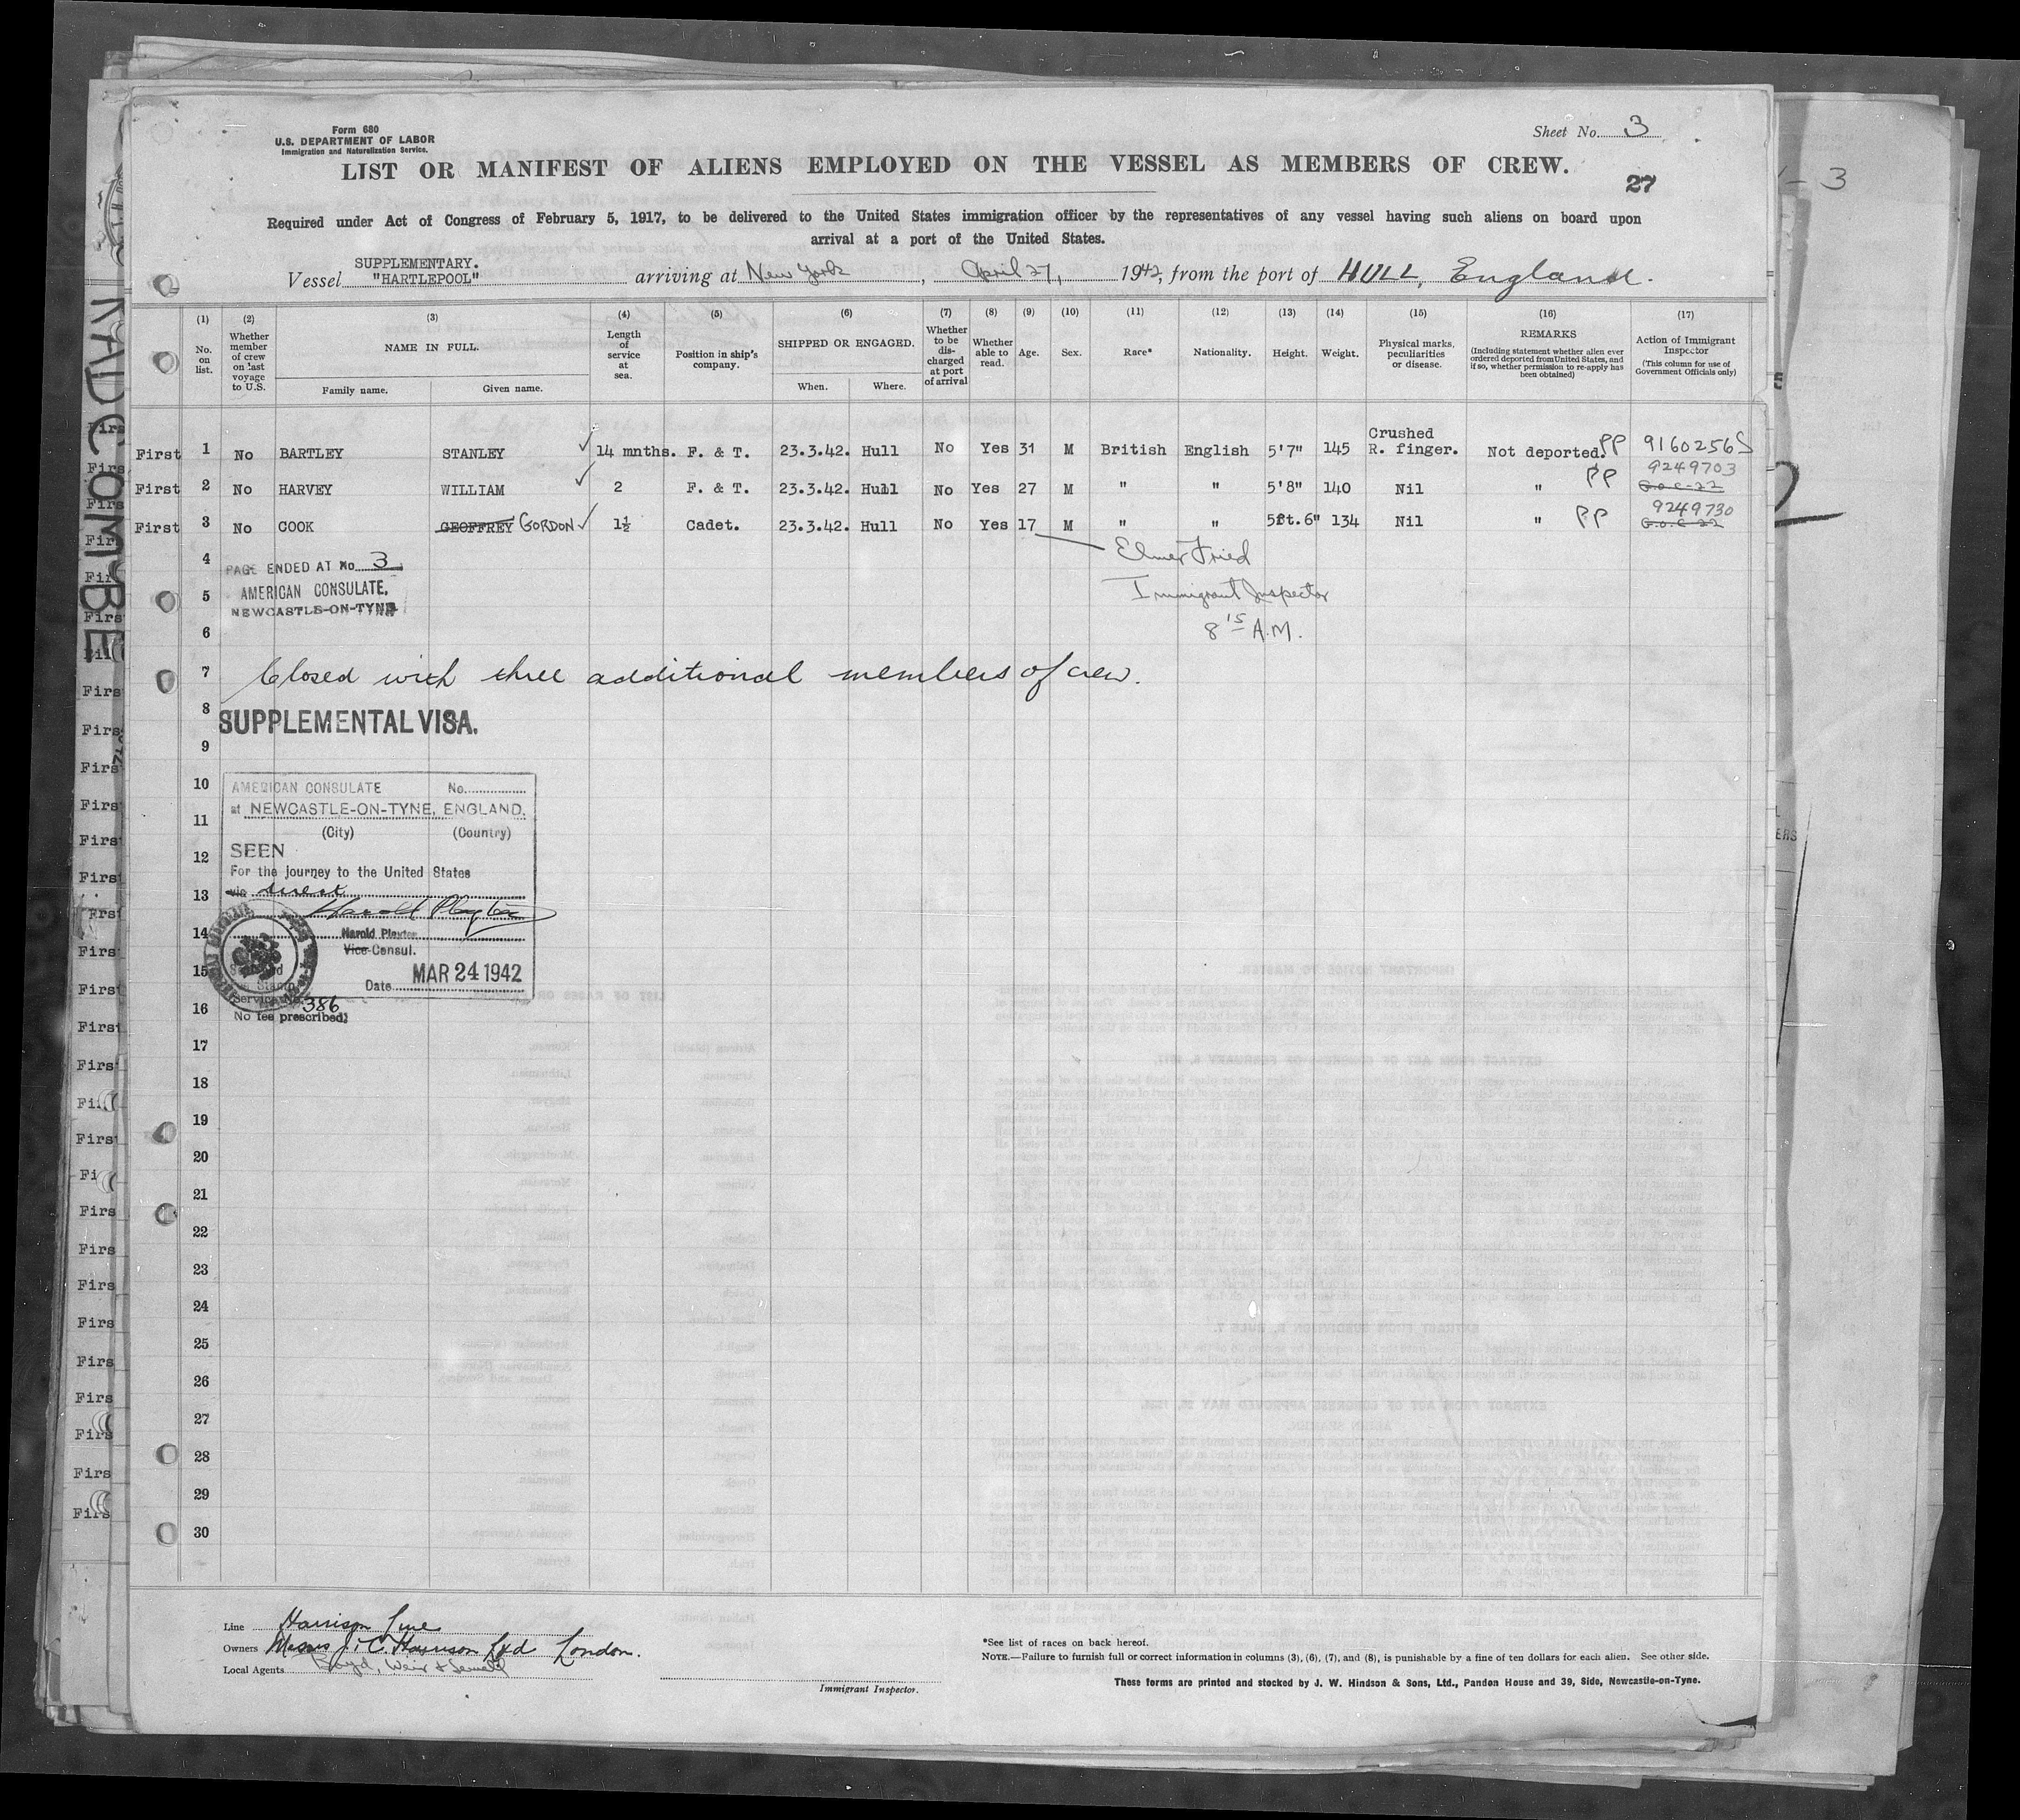 Form 680
U.S. DEPARTMENT OF LABOR
Immigration and Naturalization Service.
Sheet No. 3
LIST OR MANIFEST OF ALIENS EMPLOYED ON THE VESSEL AS MEMBERS OF CREW.
27
Required under Act of Congress of February 5, 1917, to be delivered to the United States immigration officer by the representatives of any vessel having such aliens on board upon
arrival at a port of the United States.
SUPPLEMENTARY.
Vessel "HARTLEPOOL" arriving at New York, April 27, 1942, from the port of HULL, England.
(1) No. on list.
(2) Whether member of crew on last voyage to U.S.
(3) NAME IN FULL. Family name. Given name.
(4) Length of service at sea.
(5) Position in ship's company.
(6) SHIPPED OR ENGAGED. When. Where.
(7) Whether to be discharged at port of arrival
(8) Whether able to read.
(9) Age.
(10) Sex.
(11) Race*
(12) Nationality.
(13) Height.
(14) Weight.
(15) Physical marks, peculiarities or disease.
(16) REMARKS (Including statement whether alien ever ordered deported from United States, and if so, whether permission to re-apply has been obtained)
(17) Action of Immigrant Inspector (This column for use of Government Officials only)
First 1 No BARTLEY STANLEY ✓ 14 mnths. F. & T. 23.3.42. Hull No Yes 31 M British English 5'7" 145 Crushed R. finger. Not deported. PP 9160256S
First 2 No HARVEY WILLIAM ✓ 2 F. & T. 23.3.42. Hull No Yes 27 M " " 5'8" 140 Nil " PP 9249703
First 3 No COOK GEOFFREY GORDON ✓ 1½ Cadet. 23.3.42. Hull No Yes 17 M " " 5ft.6" 134 Nil " PP 9249730
4
PAGE ENDED AT No. 3
Elmer Fried
5
AMERICAN CONSULATE,
NEWCASTLE-ON-TYNE
Immigrant Inspector
6
8 15 A.M.
7 Closed with three additional members of crew.
8
SUPPLEMENTAL VISA.
9
10
AMERICAN CONSULATE No.
at NEWCASTLE-ON-TYNE, ENGLAND.
11
(City) (Country)
12
SEEN
For the journey to the United States
13
via direct
Harold Playter
14
Harold Playter
Vice Consul.
15
Date MAR 24 1942
Service No. 386
16
No fee prescribed
17
18
19
20
21
22
23
24
25
26
27
28
29
30
Line Harrison Line
Owners Messrs J. & C. Harrison Ltd London.
Local Agents Boyd, Weir & Sewell
Immigrant Inspector.
*See list of races on back hereof.
NOTE.—Failure to furnish full or correct information in columns (3), (6), (7), and (8), is punishable by a fine of ten dollars for each alien. See other side.
These forms are printed and stocked by J. W. Hindson & Sons, Ltd., Pandon House and 39, Side, Newcastle-on-Tyne.
RADCOMBE